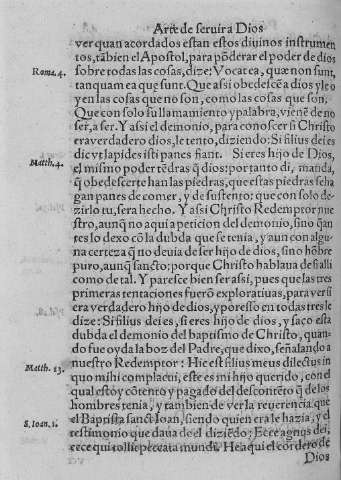 Arte de seruir a Dios
ver quan acordados estan estos diuinos instrumen
tos, tãbien el Apostol, para põderar el poder de dios
Roma. 4. sobre todas las cosas, dize: Vocat ea, quæ non sunt,
tanquam ea quę sunt. Que assi obedescẽ a dios y le o
yen las cosas que no son, como las cosas que son.
Que con solo su llamamiento y palabra, vienẽ de no
ser, a ser. Y assi el demonio, para conoscer si Christo
era verdadero dios, le tento, diziendo: Si filius dei es
Matth. 4. dic vt lapides isti panes fiant. Si eres hijo de Dios,
el mismo poder tẽdras q̃ dios: por tanto di, manda,
q̃ obedescerte han las piedras, que estas piedras se ha
gan panes de comer, y de sustento: que con solo de-
zirlo tu, sera hecho. Y assi Christo Redemptor nue
stro, aunq̃ no aqui a peticion del demonio, sino q̃an
tes lo dexo cõ la dubda que se tenia, y aun con algu-
na certeza q̃ no deuia de ser hijo de dios, sino hõbre
puro, aunq̃ sancto: porque Christo hablaua de si alli
como de tal. Y paresce bien ser assi, pues que las tres
primeras tentaciones fuerõ exploratiuas, para ver si
era verdadero hijo de dios, y por esso en todas tres le
dize: Si filius dei es, si eres hijo de dios, y saco esta
dubda el demonio del baptismo de Christo, quan-
do fue oyda la boz del Padre, que dixo, señalando a
nuestro Redemptor: Hic est filius meus dilectus in
Matth. 13. quo mihi complacui, este es mi hijo querido, con el
qual estoy cõtento y pagado del descontẽto q̃ de los
hombres tenia, y tambien de ver la reuerencia que
S. Ioan. 1. el Baptista sanct Ioan, siendo quien era le hazia, y el
testimonio que daua de el diziẽdo: Ecce agnus dei,
ecce qui tollit peccata mundi. He aqui el cordero de
Dios